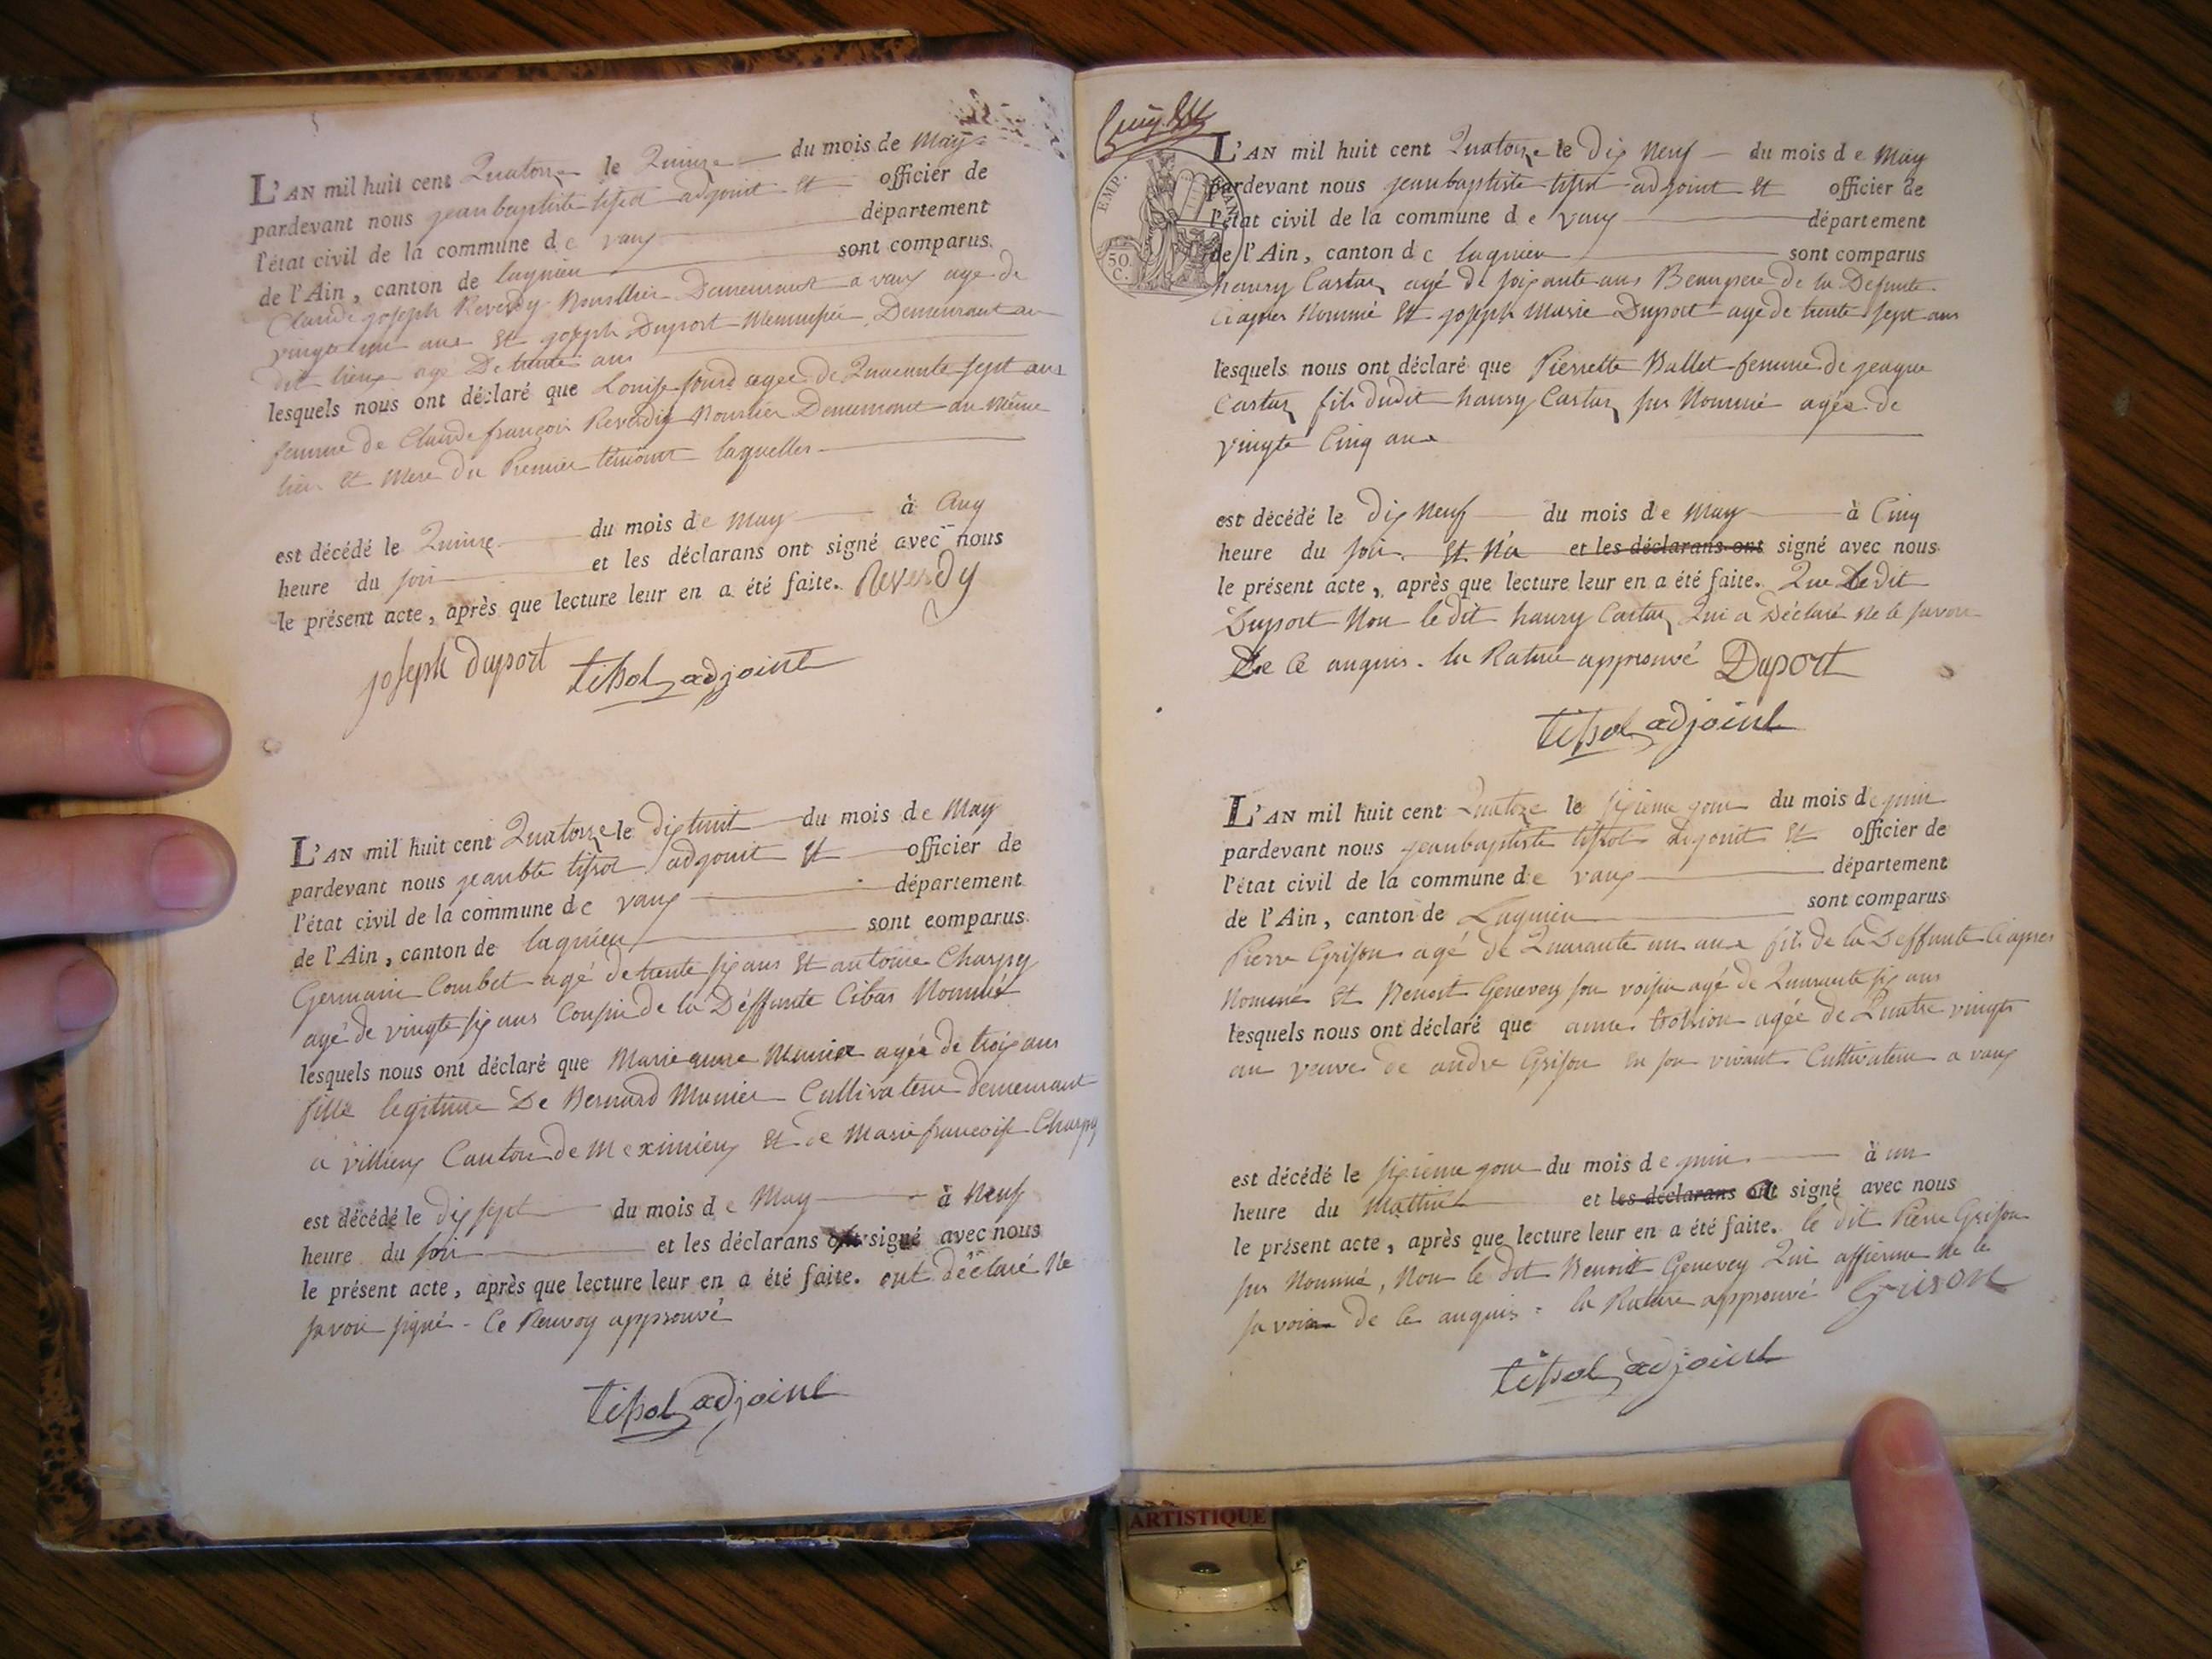 L'AN mil huit cent Quatorze le Quinze du mois de May
pardevant nous jeanbaptiste tissot adjoint Et officier de
l'état civil de la commune de vaux département
de l'Ain, canton de lagnieu sont comparus
Claude joseph Reverdy Demeurant a vaux age de
vingt un ans Et joseph Duport Menuisié Demeurant au
dit lieux agé De trente ans
lesquels nous ont déclaré que Louise agee de Quarente sept ans
femme de Claude françois Reverdy Demeurant au même
lieu Et Mere du Premier témoint laquelles
est décédé le Quinze du mois de May à Cinq
heure du soir et les déclarans ont signé avec nous
le présent acte, après que lecture leur en a été faite. Reverdy
joseph duport tissot adjoint
L'AN mil huit cent Quatorze le dixhuit du mois de May
pardevant nous jeanbte tissot adjoint Et officier de
l'état civil de la commune de vaux département
de l'Ain, canton de lagnieu sont comparus
Germain Combet agé de trente six ans Et antoine Charpy
agé de vingt six ans Cousin de la Déffunte Cibas Nommée
lesquels nous ont déclaré que Marie anne Munier agée de trois ans
fille legitime De Bernard Munier Cultivateur demeurant
a villieux Canton de Meximieux Et de Marie françoise Charpy
est décédé le dix sept du mois de May à Neuf
heure du soir et les déclarans ont signé avec nous
le présent acte, après que lecture leur en a été faite. ont déclaré Ne
savoir signé - Ce Renvoy approuvé
tissot adjoint
EMP. FRAN.
50.
C.
L'AN mil huit cent Quatorze le dix Neuf du mois de May
pardevant nous jeanbaptiste tissot adjoint Et officier de
l'état civil de la commune de vaux département
de l'Ain, canton de lagnieu sont comparus
hanry Castaz agé de soixante ans Beaupere de la Defunte
Ciapres Nommé Et joseph Marie Duport age de trente sept ans
lesquels nous ont déclaré que Pierrette Ballet femme de jeaque
Castaz fils dudit hanry Castaz sus Nommé agée de
vingte Cinq ans
est décédé le dix Neuf du mois de May à Cinq
heure du soir. Et N'a et les déclarans ont signé avec nous
le présent acte, après que lecture leur en a été faite. Que Le dit
Duport Non le dit hanry Castaz Qui a Déclaré Ne le savoir
De Ce anquis. la Rature approuvé Duport
tissot adjoint
L'AN mil huit cent Quatorze le sixieme jour du mois de juin
pardevant nous jeanbaptiste tissot adjoint Et officier de
l'état civil de la commune de vaux département
de l'Ain, canton de Lagnieu sont comparus
Pierre Grison agé de Quarante un ans fils de la Deffunte Ciapres
Nommé Et Benoit Genevey son voisin agé de Quarante six ans
lesquels nous ont déclaré que anne agée de Quatre vingts
an veuve de andre Grison en son vivant Cultivateur a vaux
est décédé le sixieme jour du mois de juin à un
heure du Mattin et les déclarans ont signé avec nous
le présent acte, après que lecture leur en a été faite. le dit Pierre Grison
sus Nommé, Non le dit Benoit Genevey Qui affierme Ne le
savoir De Ce anquis. la Rature approuvé GRISON
tissot adjoint
ARTISTIQUE